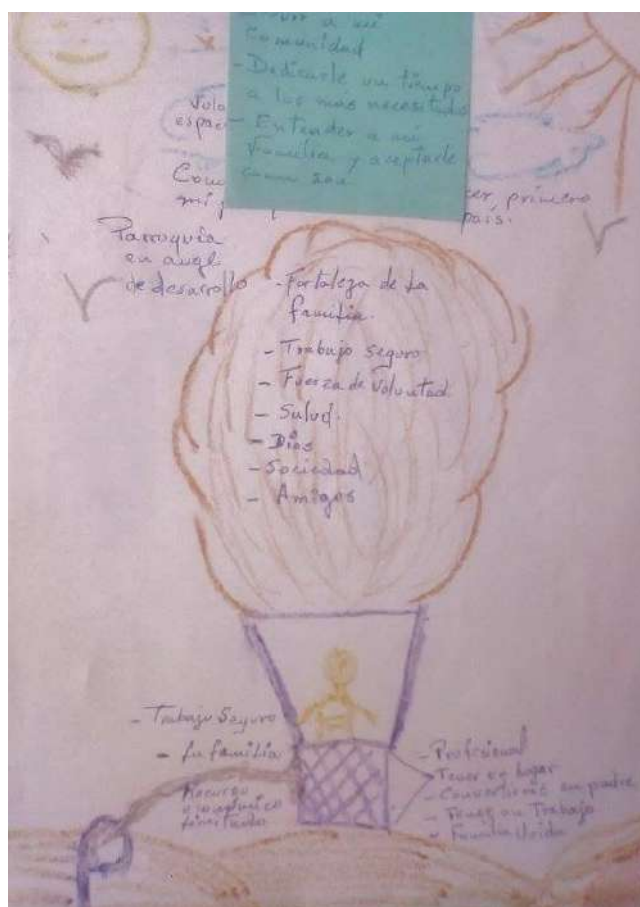 a mi
Comunidad
- Dedicarle un tiempo
a los más necesitados
- Entender a mi
Familia y aceptarle
como son.
Volo
espac
Com
mi
cer, primero
país.
Parroquia
en auge
de desarrollo
- Fortaleza de La
familia.
- Trabajo seguro
- Fuerza de Voluntad
- Salud.
- Dios
- Sociedad
- Amigos
- Trabajo Seguro
- La familia
Recurso
económico
limitado
- Profesional
- Tener un hogar
- Convertirme en padre
- Tener un Trabajo
- Familia Unida